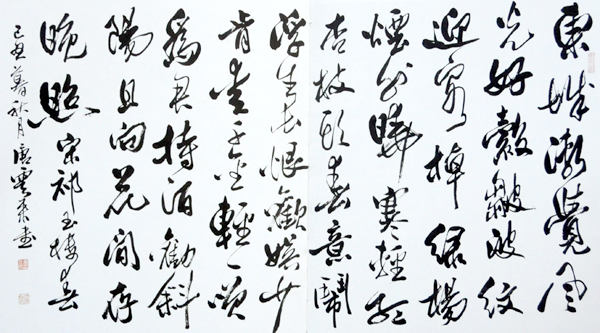 東城漸覺風
光好縠皺波紋
迎客棹綠楊
煙外曉寒輕紅
杏枝頭春意鬧
浮生長恨歡娛少
肯愛千金輕一笑
為君持酒勸斜
陽且向花間留
晚照宋祁玉樓春
己丑暮秋月唐雲來書